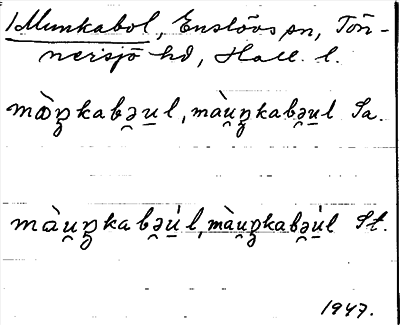 1 Munkabol, Enslövs sn, Tön-
nersjö hd, Hall. l.
mòŋkabə̯u̲l, màu̯ŋkabə̯u̲l Sa.
màu̯ŋkabə̯ú̲l, màu̯ŋkabə̯ú̲l St.
1947.